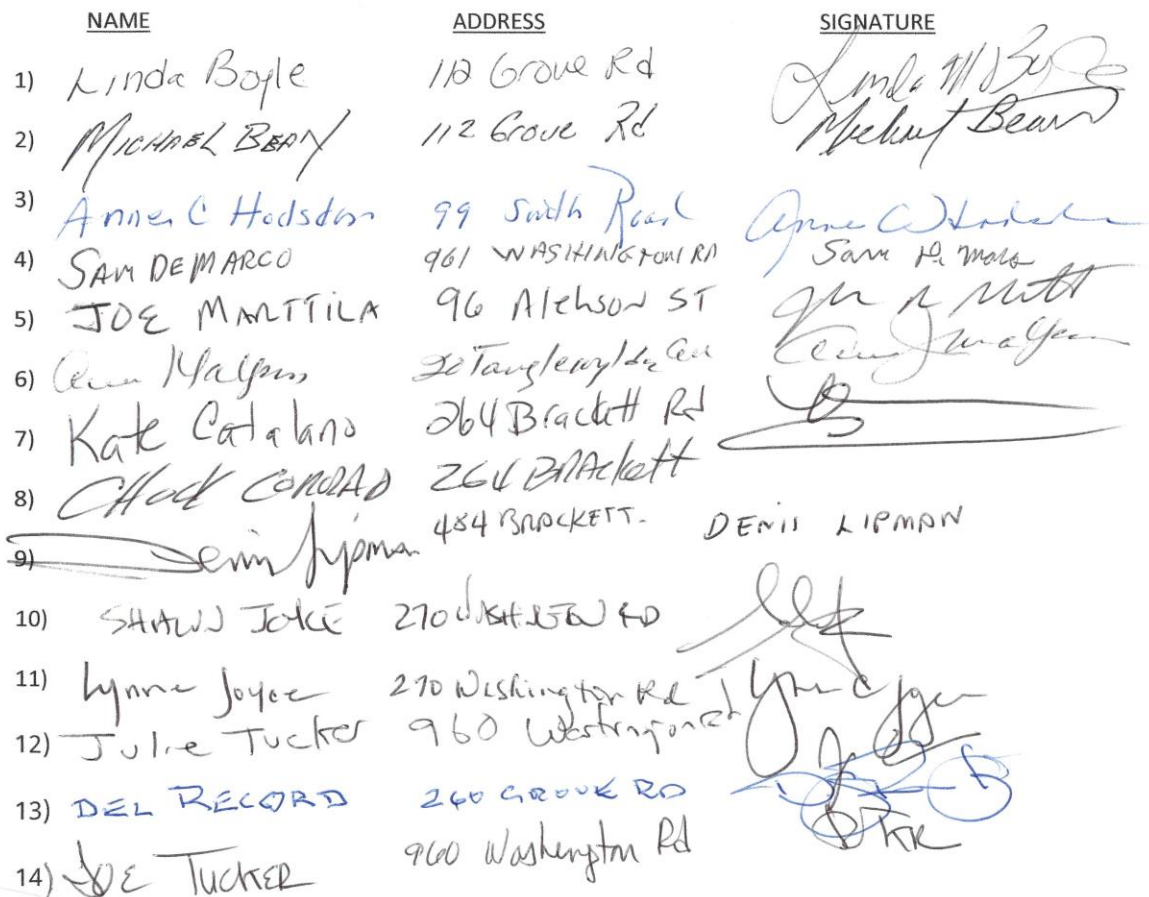 NAME ADDRESS SIGNATURE
1) Linda Boyle 112 Grove Rd Linda M Boyle
2) MICHAEL BEAN 112 Grove Rd Michael Bean
3) Anne C Hodsdon 99 South Road Anne C Hodsdon
4) SAM DEMARCO 961 WASHINGTON RD Sam DeMarco
5) JOE MARTTILA 96 ST
6) 20
7) Kate Catalano 264 Brackett Rd
8) CHUCK CONRAD 264 BRACKett
9) Denis Lipman 484 BRACKETT. DENIS LIPMAN
10) SHAWN JOYCE 270 WASHINGTON RD
11) Lynne Joyce 270 Washington Rd Lynne C Joyce
12) Julie Tucker 960 Washington Rd
13) DEL RECORD 260 GROVE RD
14) JOE TUCKER 960 Washington Rd